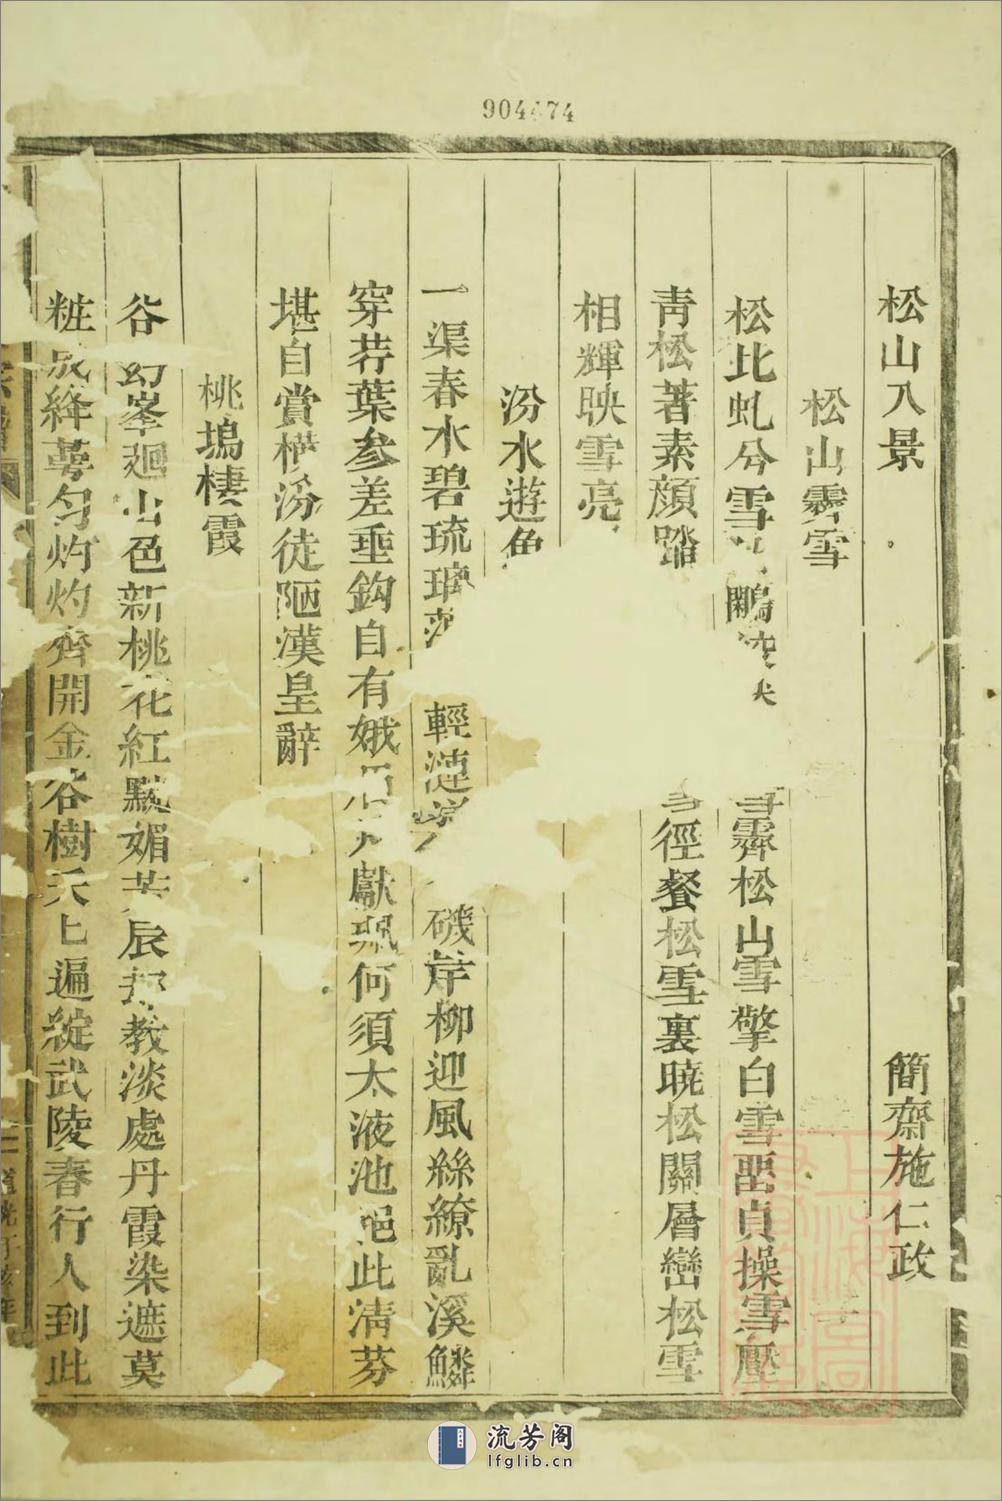 904674
松山入景 簡齋施仁政
松山霽雪
松比虬兮雪 鵰 雪霽松山雪擎白雪堊貞操雪壓
青松著素顔踏 雪徑餐松雪裏曉松關層巒松雪
相輝映雪亮
汾水遊魚
一渠春水碧琉璃 輕漣 磯岸柳迎風絲繚亂溪鱗
穿荇葉參差垂鈎自有娥 獻 何須太液池 此清芬
堪自賞橫汾徒陋漢皇辭
桃塢棲霞
谷幻峯廻山色新桃花紅 媚 辰 教淡處丹霞染遮莫
粧成絳萼勻灼灼齊開金谷樹天上遍綻武陵春行人到此
上海圖
流芳阁
lfglib.cn